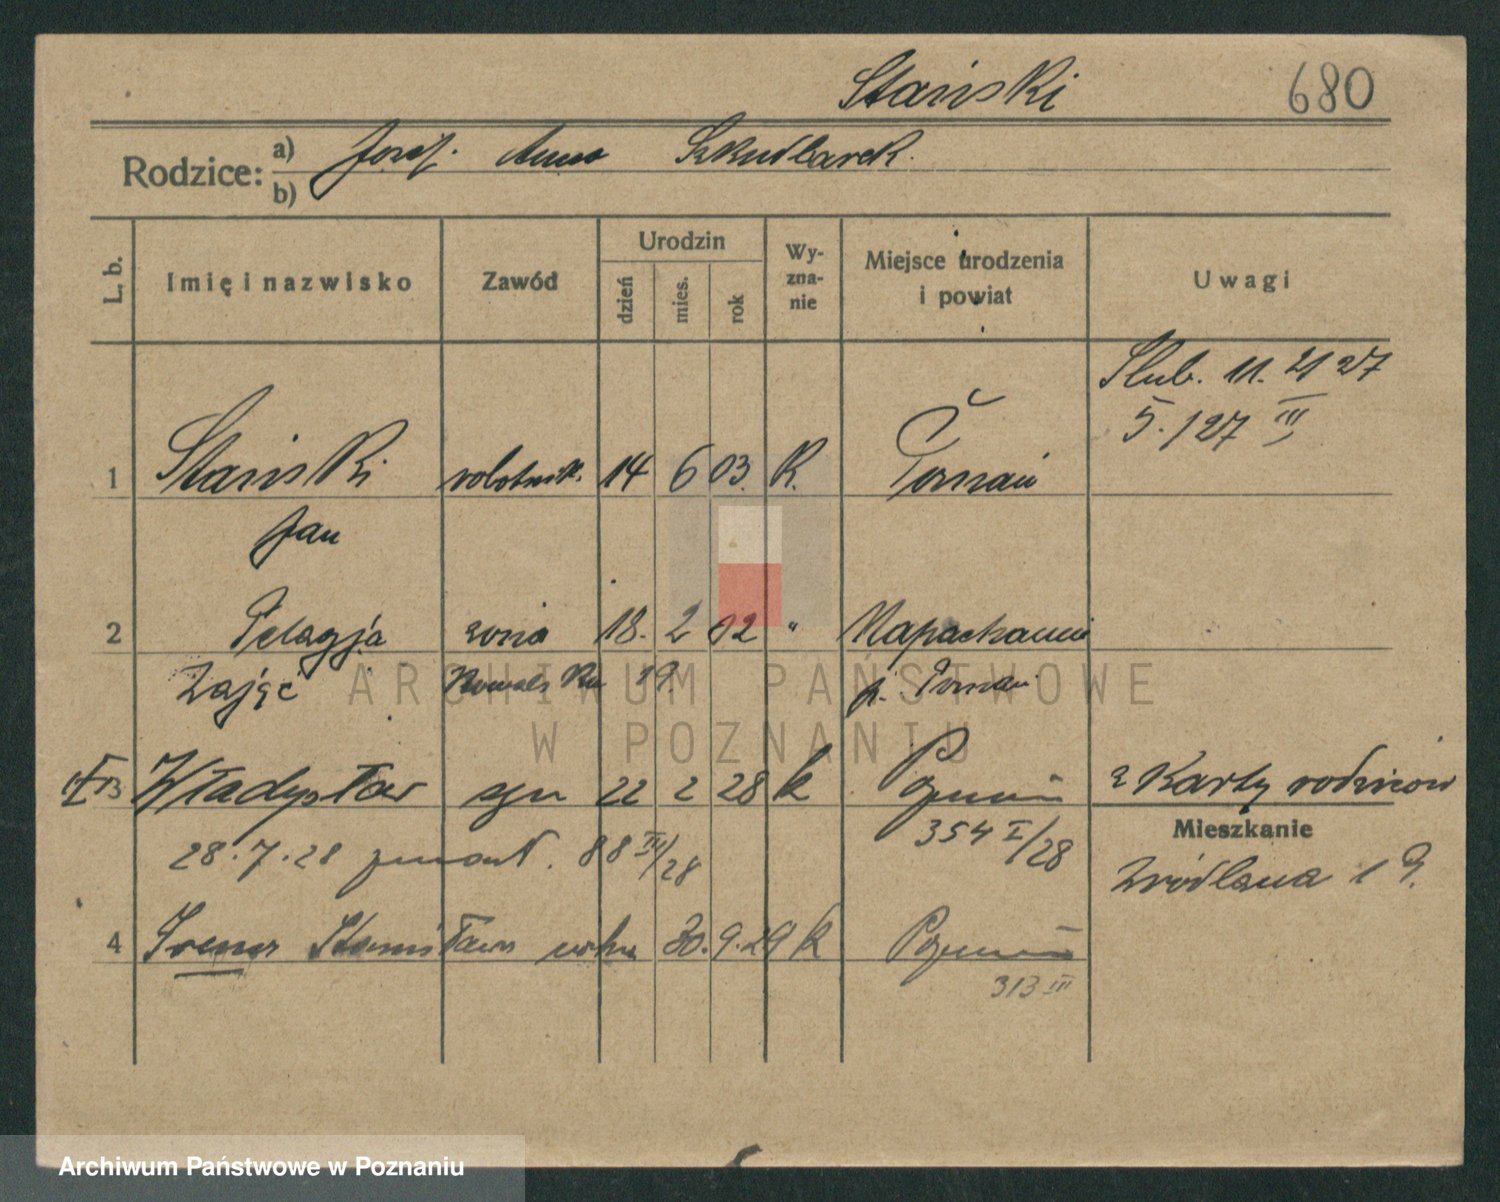 Stański 680
Rodzice: a) Józef. Anna Szkudlarek.
b)
L. b. Imię i nazwisko Zawód Urodzin dzień mies. rok Wy-zna-nie Miejsce urodzenia i powiat Uwagi
Ślub. 11. 4 27
5./27 III
1 Stański robotnik. 14 6 03. R. Poznań
Jan
2 Pelagja żona 18. 2 02 " Napachanie
Zając Kowalska p. Poznań
ARCHIWUM PAŃSTWOWE
W POZNANIU
3 Władysław syn 22 2 28 k Poznań z Karty rodziców
354 I/28
Mieszkanie
28.7.28 zmarł. 88 III/28
Źródlana 19.
4 Irena Stanisława córka 30. 9. 29 k Poznań
313 III
Archiwum Państwowe w Poznaniu